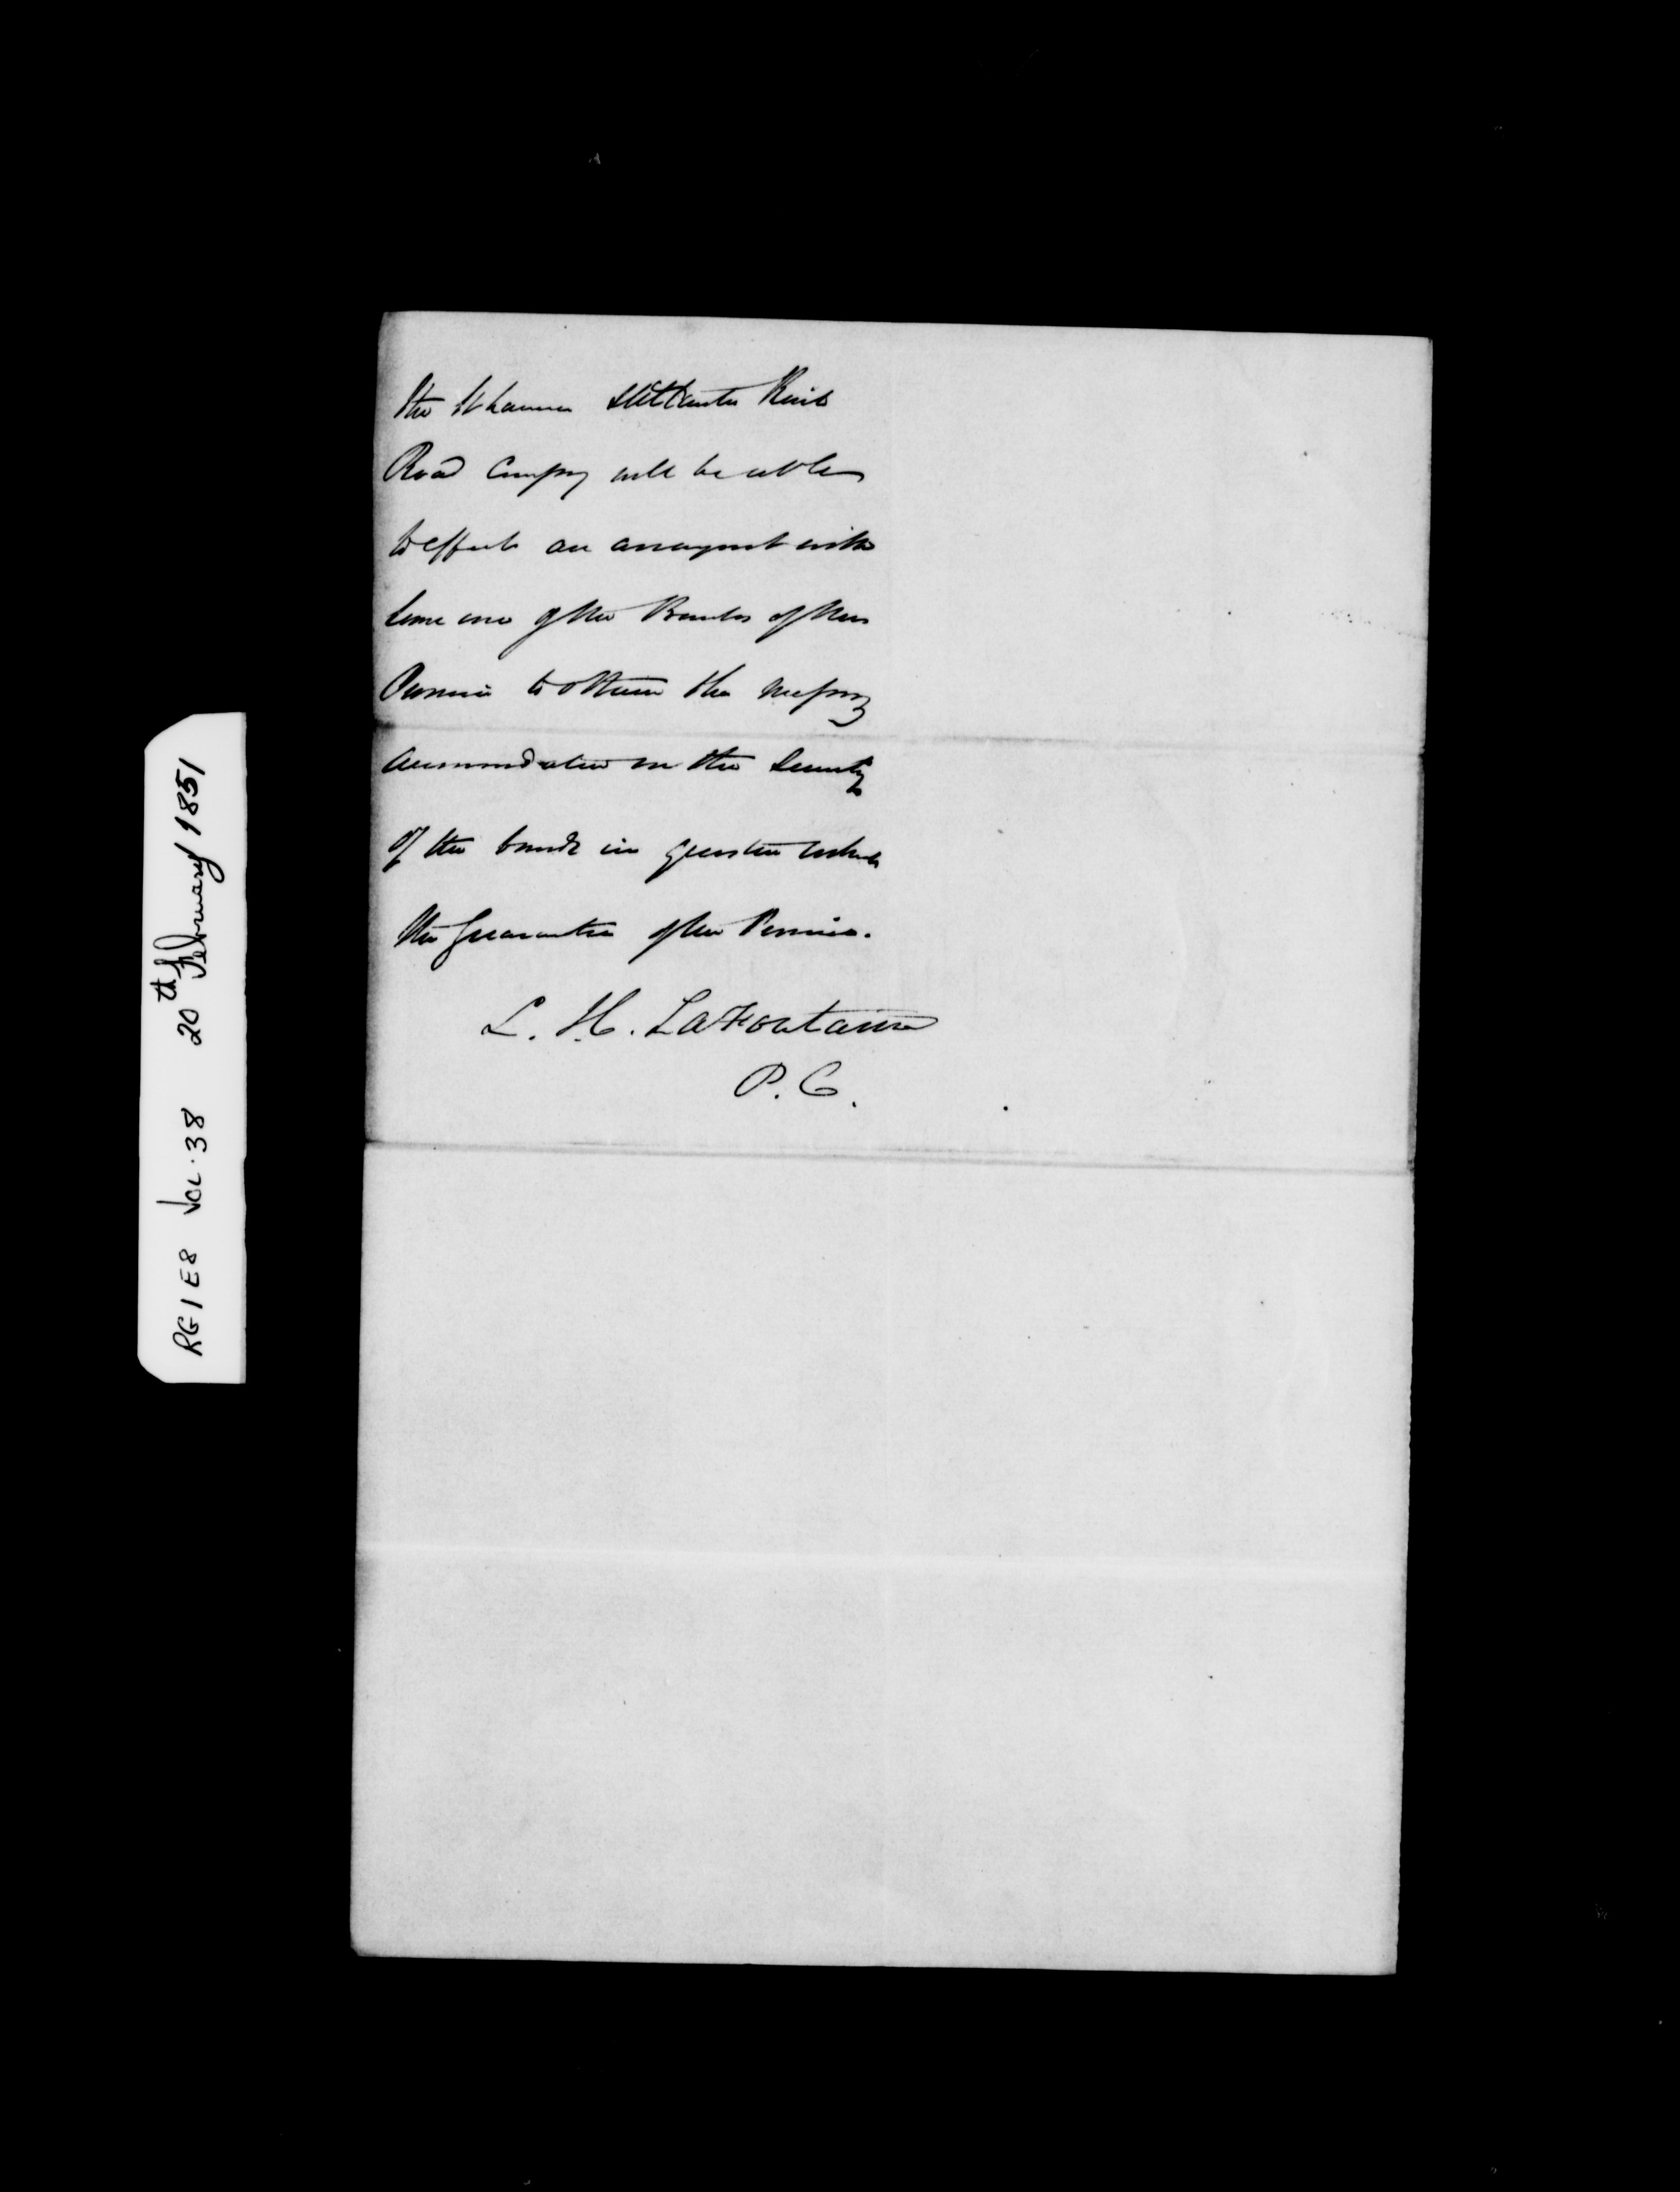 the St Lawrence & Atlantic Rail
Road Company will be able
to effect an arrangement with
some one of the Banks of this
Province to obtain the necessary
accommodation on the Security
of the bonds in question with
the Guarantee of the Province.
L. H. LaFontaine
P. C.
RG1E8 VOL.38 20th February 1851